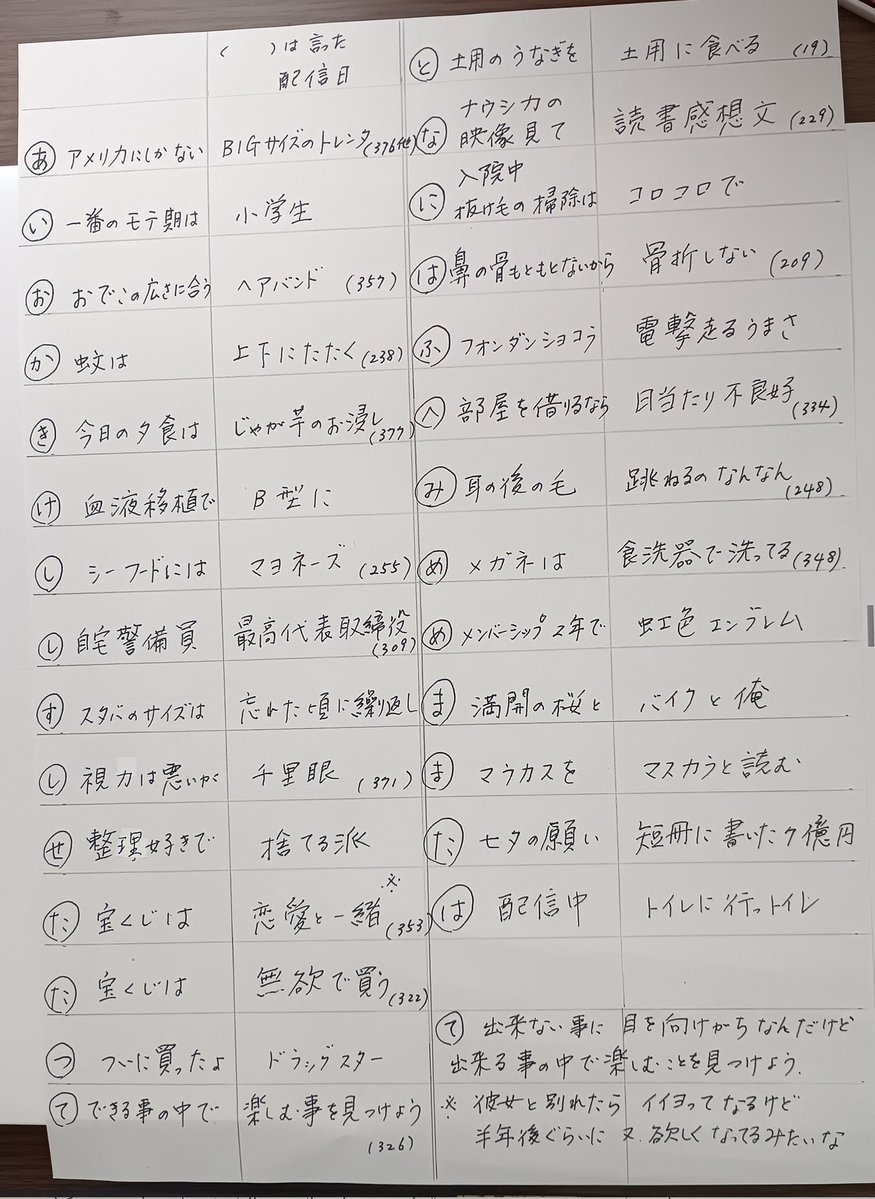 ( )は言った
配信日
あ アメリカにしかない BIGサイズのトレンタ(376他)
い 一番のモテ期は 小学生
お おでこの広さに合う ヘアバンド (357)
か 蚊は 上下にたたく(238)
き 今日の夕食は じゃが芋のお浸し
(377)
け 血液移植で B型に
し シーフードには マヨネーズ (255)
し 自宅警備員 最高代表取締役
(309)
す スタバのサイズは 忘れた頃に繰り返し
し 視力は悪いが 千里眼 (371)
せ 整理好きで 捨てる派
た 宝くじは 恋愛と一緒※(353)
た 宝くじは 無欲で買う(322)
つ ついに買ったよ ドラッグスター
て できる事の中で 楽しむ事を見つけよう
(326)
と 土用のうなぎを 土用に食べる (19)
な ナウシカの
映像見て 読書感想文 (229)
に 入院中
抜け毛の掃除は コロコロで
は 鼻の骨もともとないから 骨折しない (209)
ふ フォンダンショコラ 電撃走るうまさ
へ 部屋を借りるなら 日当たり不良好
(334)
み 耳の後の毛 跳ねるのなんなん
(248)
め メガネは 食洗器で洗ってる(348)
め メンバーシップ2年で 虹色エンブレム
ま 満開の桜と バイクと俺
ま マラカスを マスカラと読む
た 七夕の願い 短冊に書いた7億円
は 配信中 トイレに行っトイレ
て 出来ない事に目を向けがちなんだけど
出来る事の中で楽しむことを見つけよう.
※ 彼女と別れたら イイヨってなるけど
半年後ぐらいに又欲しくなってるみたいな